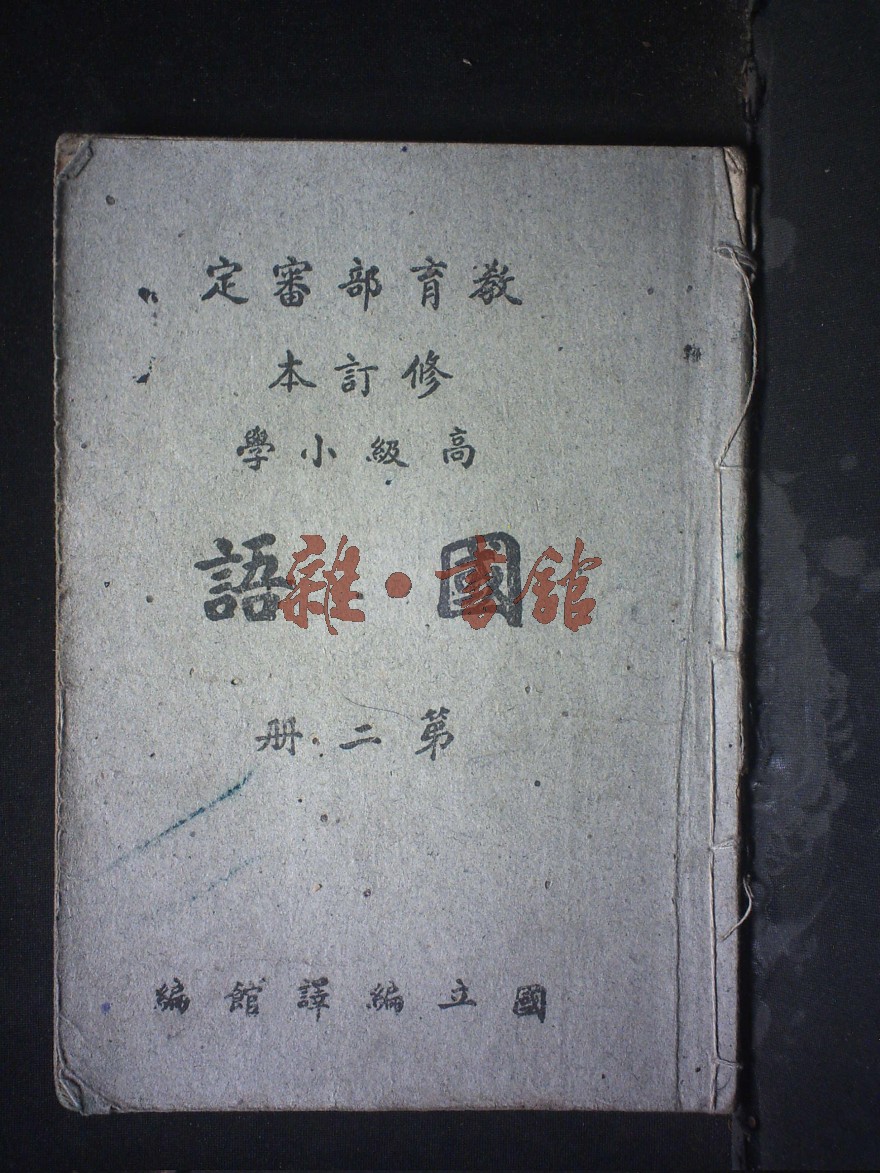 教育部審定
修訂本
高級小學
國語
雜·書館
第二册
國立編譯館編